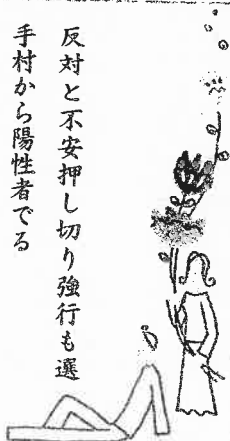 反対と不安押し切り強行も選
手村から陽性者でる